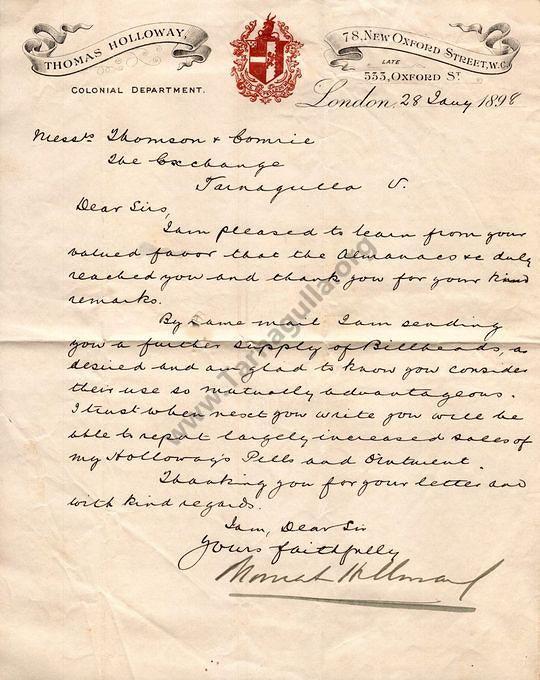 THOMAS HOLLOWAY,
COLONIAL DEPARTMENT.
78, NEW OXFORD STREET, W.C.
LATE
533, OXFORD ST.
London, 28 Jany 1898
Messrs Thomson & Comrie
The Exchange
Tarnagulla V.
Dear Sirs,
I am pleased to learn from your
valued favor that the Almanacs &c duly
reached you and thank you for your kind
remarks.
By same mail I am sending
you a further supply of Billheads, as
desired and am glad to know you consider
their use so mutually advantageous.
I trust when next you write you will be
able to report largely increased sales of
my Holloway's Pills and Ointment.
Thanking you for your letter and
with kind regards.
I am, Dear Sir
Yours faithfully
Holloway
www.Tarnagulla.org